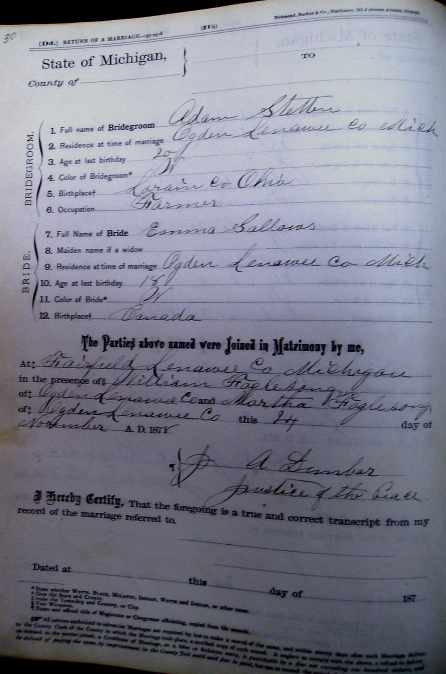 30
[D4.] RETURN OF A MARRIAGE.
State of Michigan,
TO
County of
BRIDEGROOM.
1. Full name of Bridegroom Adam Stetten
2. Residence at time of marriage Ogden Lenawee Co Mich
3. Age at last birthday 20
4. Color of Bridegroom* W
5. Birthplace† Lorain Co Ohio
6. Occupation Farmer
BRIDE.
7. Full Name of Bride Emma Sallows
8. Maiden name if a widow
9. Residence at time of marriage Ogden Lenawee Co Mich
10. Age at last birthday 18
11. Color of Bride* W
12. Birthplace† Canada
The Parties above named were Joined in Matrimony by me,
At‡ Fairfield Lenawee Co Michigan
in the presence of§ William Foglesong
of‡ Ogden Lenawee Co and Martha Foglesong
of‡ Ogden Lenawee Co this 24 day of
November A. D. 187
A Dunbar
Justice of the Peace
I Hereby Certify, That the foregoing is a true and correct transcript from my
record of the marriage referred to.
Dated at
this day of 187